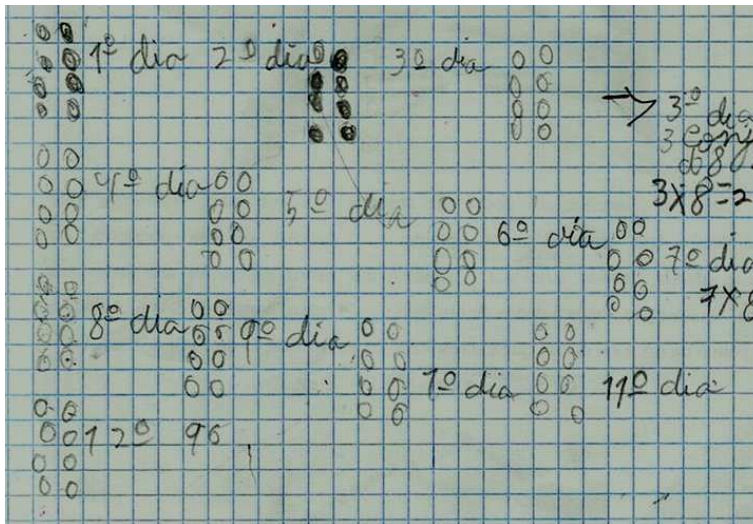 1º dia 2º dia 3º dia
→ 3º dia
3 conj
do 8
3x8=2
4º dia 5º dia 6º dia 7º dia
7x8
8º dia 9º dia 1º dia 11º dia
12º 96